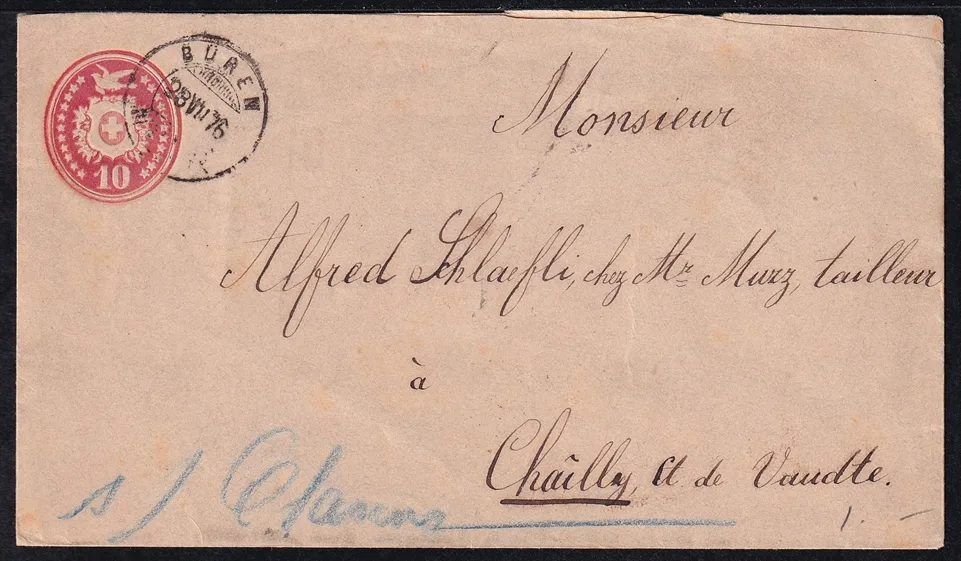 BÜREN
28 VII 76
10
Monsieur
Alfred Schlaefli, chez Mr Murz, tailleur
à
Chailly, Ct de Vaudte.
s/ Clarens
1. –